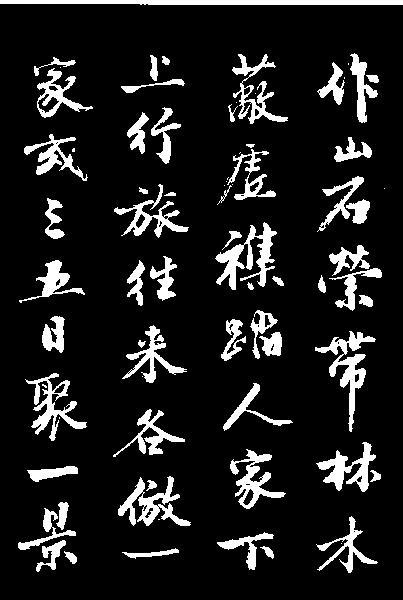 作山石縈帶林木
蔽虛襍踏人家下
上行旅往来各倣一
家或三五日聚一景